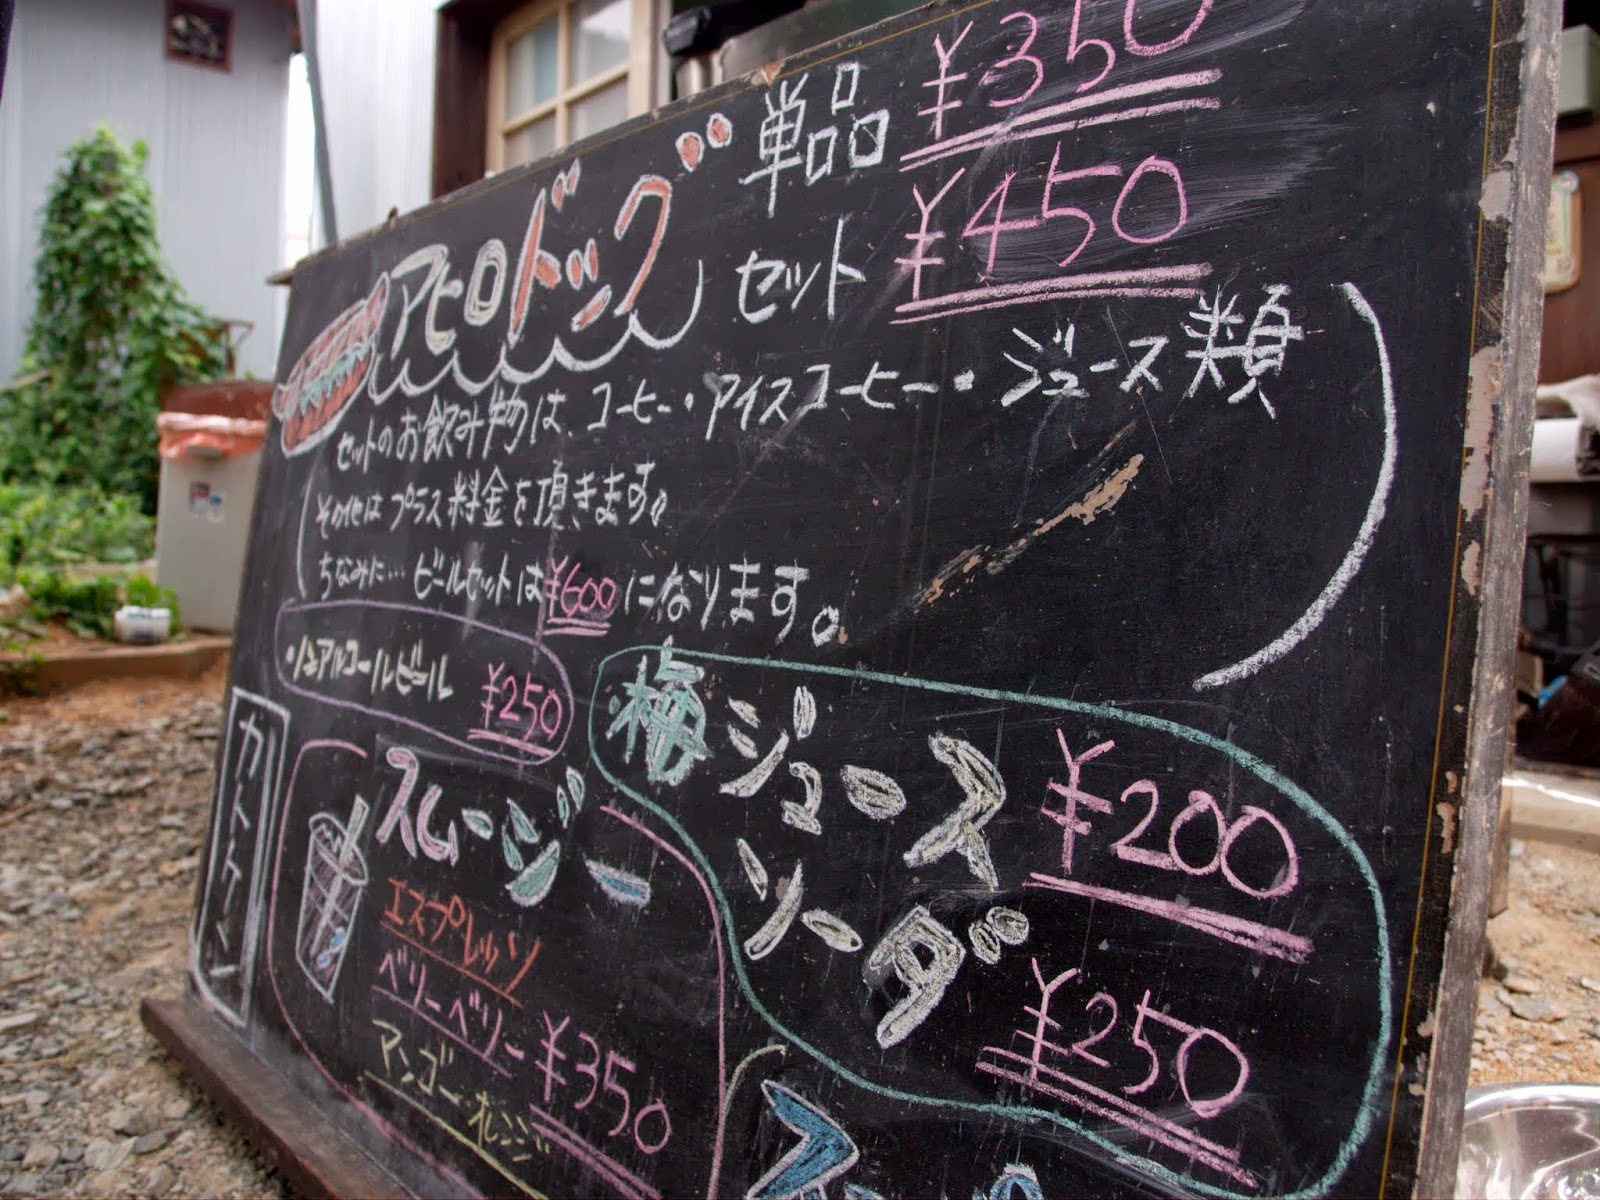 アヒロドッグ
単品 ¥350
セット ¥450
セットのお飲み物は、コーヒー・アイスコーヒー・ジュース類
その他はプラス料金を頂きます。
ちなみに…ビールセットは¥600になります。
・ノンアルコールビール ¥250
カトケン
スムージー
エスプレッソ
ベリーベリー ¥350
マンゴー・オレンジ
・梅ジュース ¥200
ソーダ ¥250